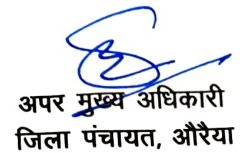 अपर मुख्य अधिकारी
जिला पंचायत, औरैया